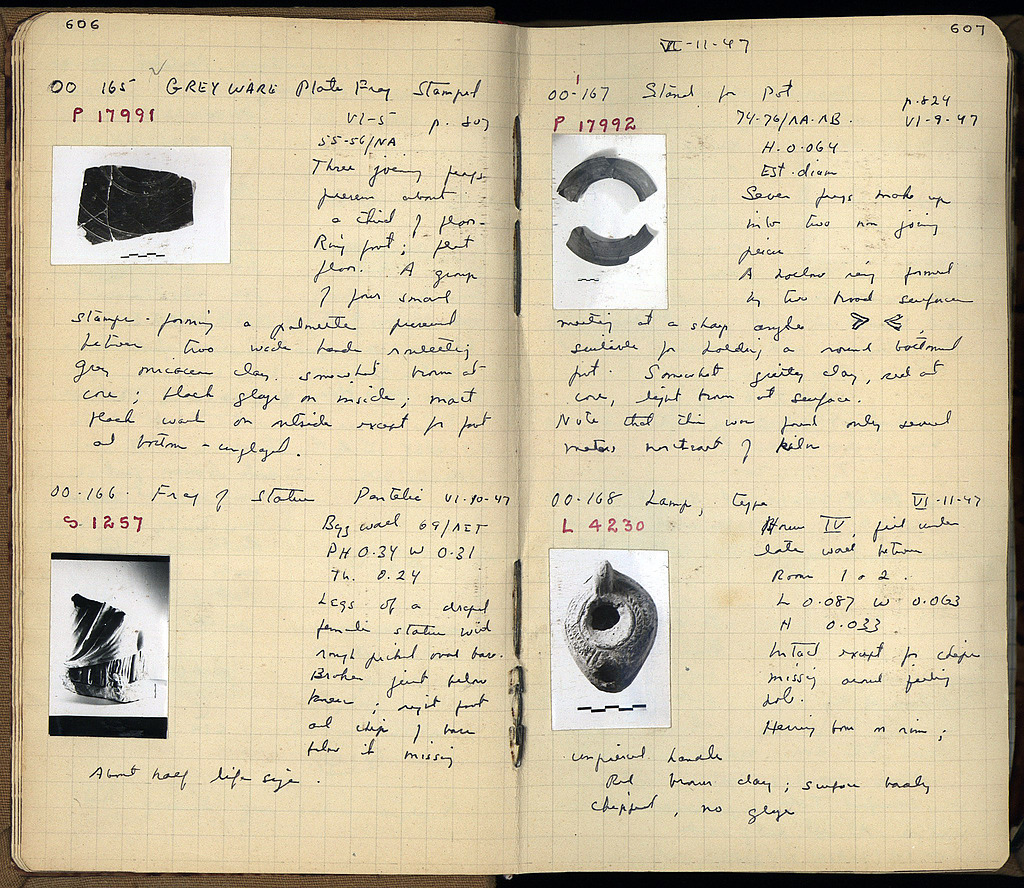 606
OO 165 GREY WARE Plate Frag Stamped
P 17991
VI-5 p. 807
55-56/ΝΑ
Three joining frags
preserve about
a third of floor.
Ring foot; flat
floor. A group
of four small
stamps forming a palmette preserved
between two wide bands rouletting
Grey micaceous clay somewhat brown at
core; black glaze on inside; matt
black wash on outside except for foot
and bottom - unglazed.
OO-166. Frag of Statue Pentelic VI-10-47
S 1257
Bgg wall 69/ΛΣΤ
PH 0.34 W 0.31
Th. 0.24
Legs of a draped
female statue with
rough picked oval base.
Broken just below
knees; right foot
and chip of base
below it missing
About half life size.
607
VI-11-47
OO-167 Stand for Pot
P 17992
p. 824
74-76/ΛΑ-ΛΒ. VI-9-47
H. 0.064
Est. diam
Seven frags make up
into two non joining
pieces
A hollow ring formed
by two broad surfaces
meeting at a sharp angle
suitable for holding a round bottomed
pot. Somewhat gritty clay, red at
core, light brown at surface.
Note that this was found only several
meters northeast of kiln
OO-168 Lamp, type VI-11-47
L 4230
House IV, fill under
late wall between
Room 1 a 2.
L 0.087 W 0.063
H 0.033
Intact except for chips
missing around filling
hole.
Herring bone on rim;
unpierced handle
Red brown clay; surface badly
chipped, no glaze